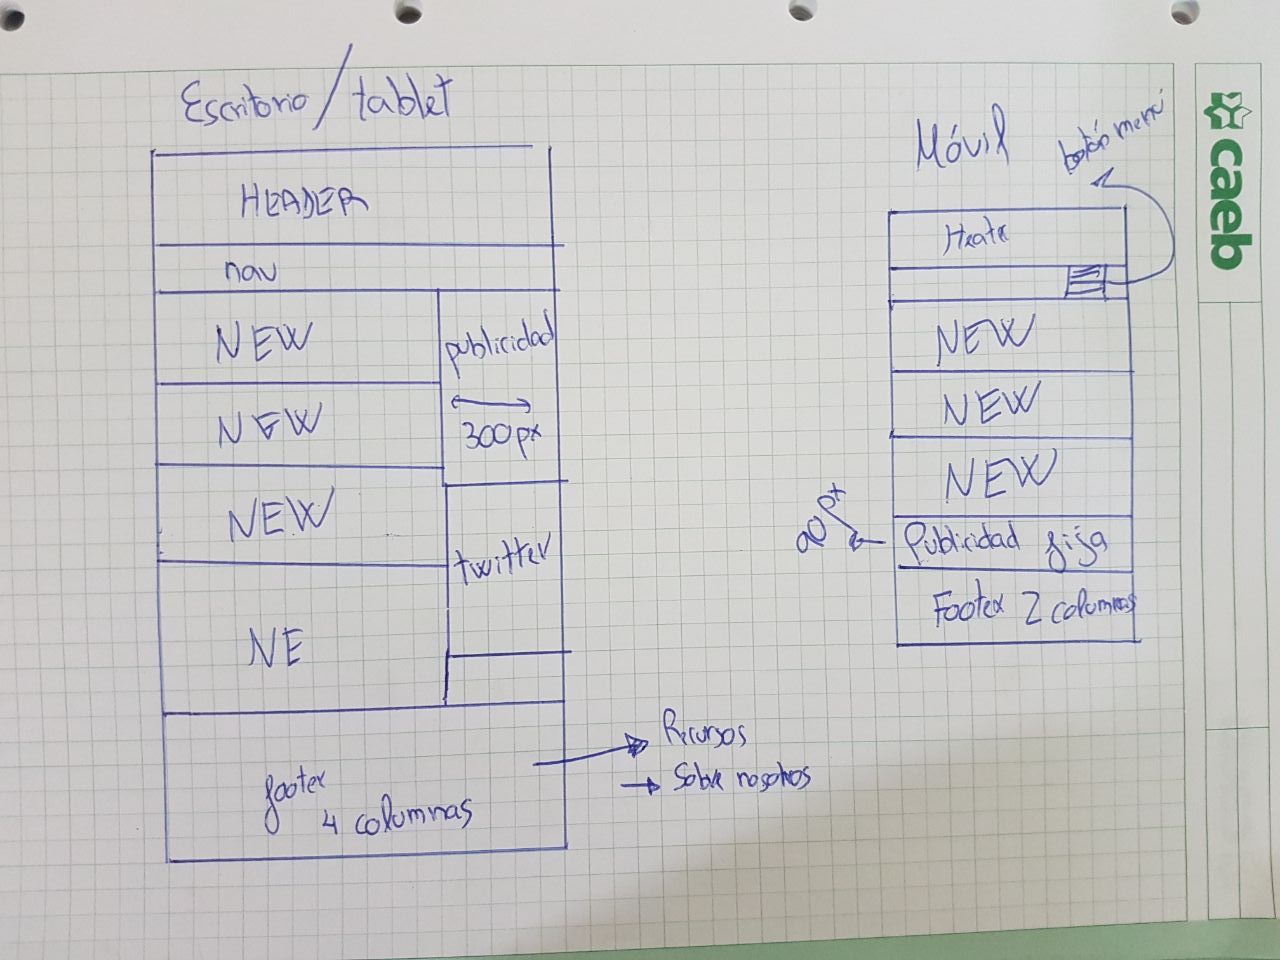 Escritorio/tablet
HEADER
nav
NEW
NEW
NEW
NE
publicidad
300px
twitter
footer
4 columnas
Recursos
Sobre nosotros
Móvil
botón menú
NEW
NEW
NEW
Publicidad fija
Footer 2 columnas
caeb